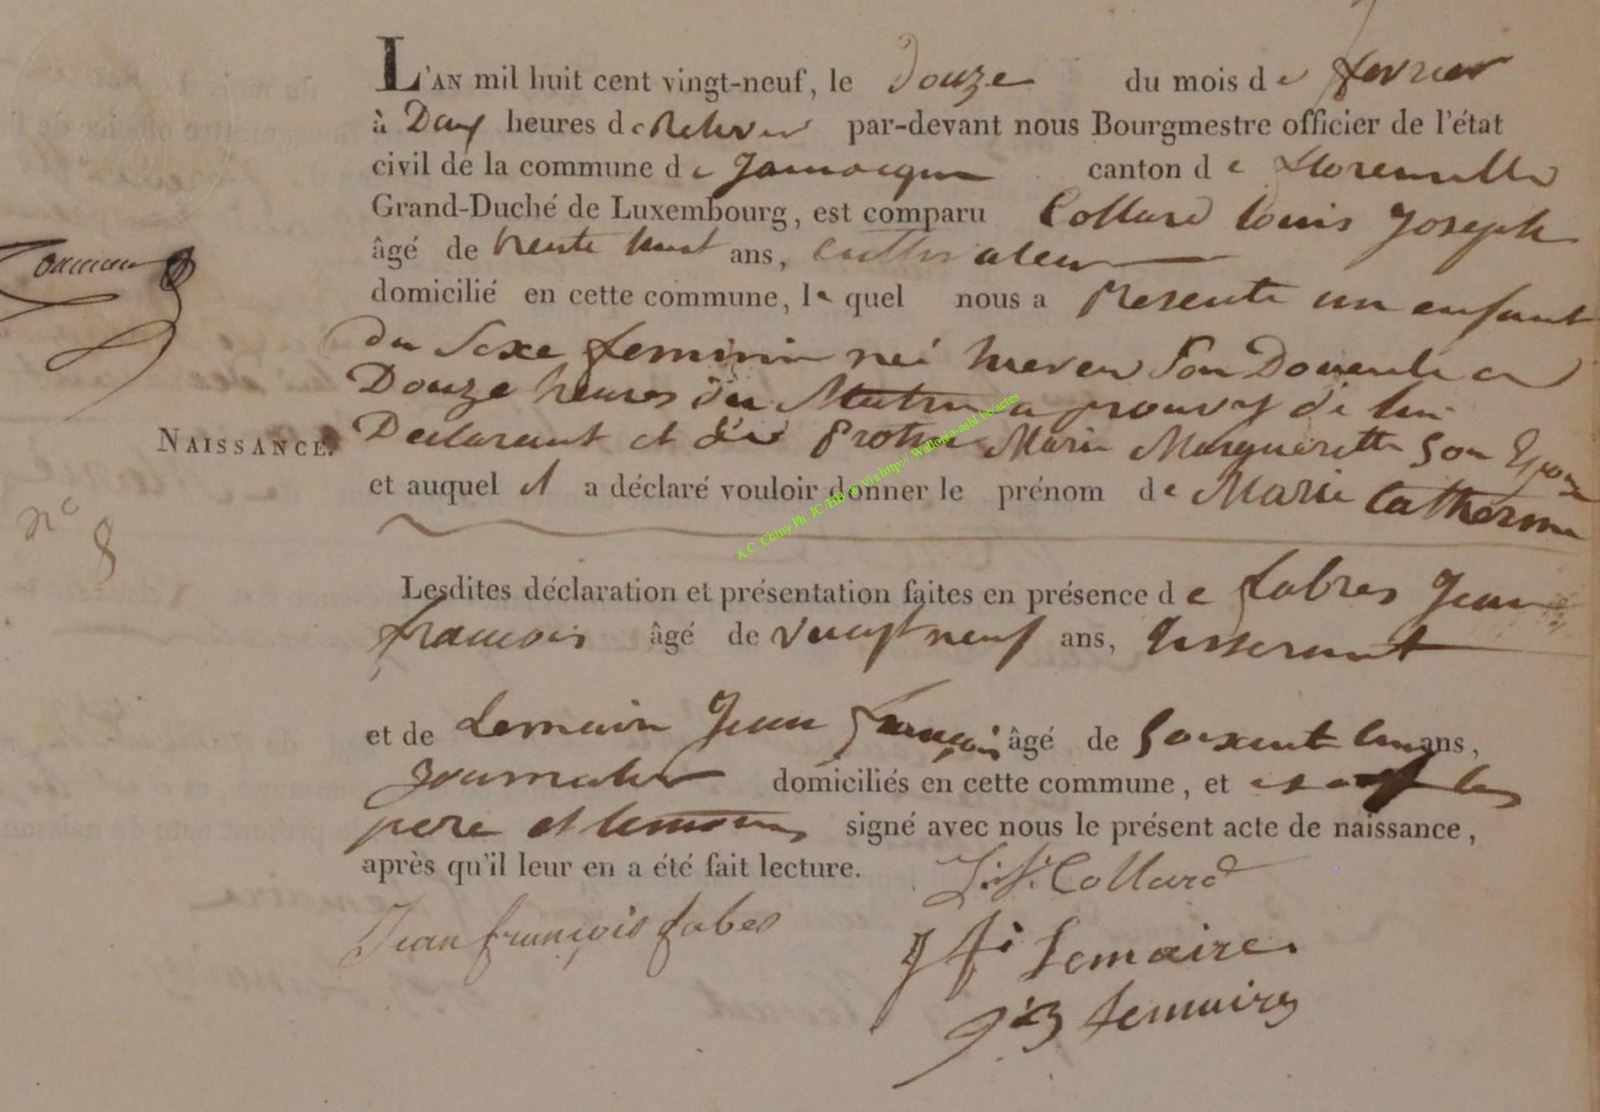 L'AN mil huit cent vingt-neuf, le douze du mois de fevrier
à Dax heures de Relever par-devant nous Bourgmestre officier de l'état
civil de la commune de Jamoigne canton de Florenville
Grand-Duché de Luxembourg, est comparu Collard Louis Joseph
âgé de trente huit ans, cultivateur
domicilié en cette commune, le quel nous a presenté un enfant
du Sexe feminin née hier en Son
Douze heures du Matin a de lui
Declarant et de Marie Marguerette Son Epouse
NAISSANCE.
n° 8
et auquel il a déclaré vouloir donner le prénom de Marie Catherine
A.C Chiny Ph JC /HB & Via http:// Wallonia-asbl.be/actes
Lesdites déclaration et présentation faites en présence de fabres Jean
francois âgé de vingt neuf ans, tisserant
et de Lemaire Jean François âgé de Soixante ans,
Journalier domiciliés en cette commune, et les
pere et temoins signé avec nous le présent acte de naissance,
après qu'il leur en a été fait lecture.
L. J. Collard
Jean françois fabes
J f Lemaire
Lemaire